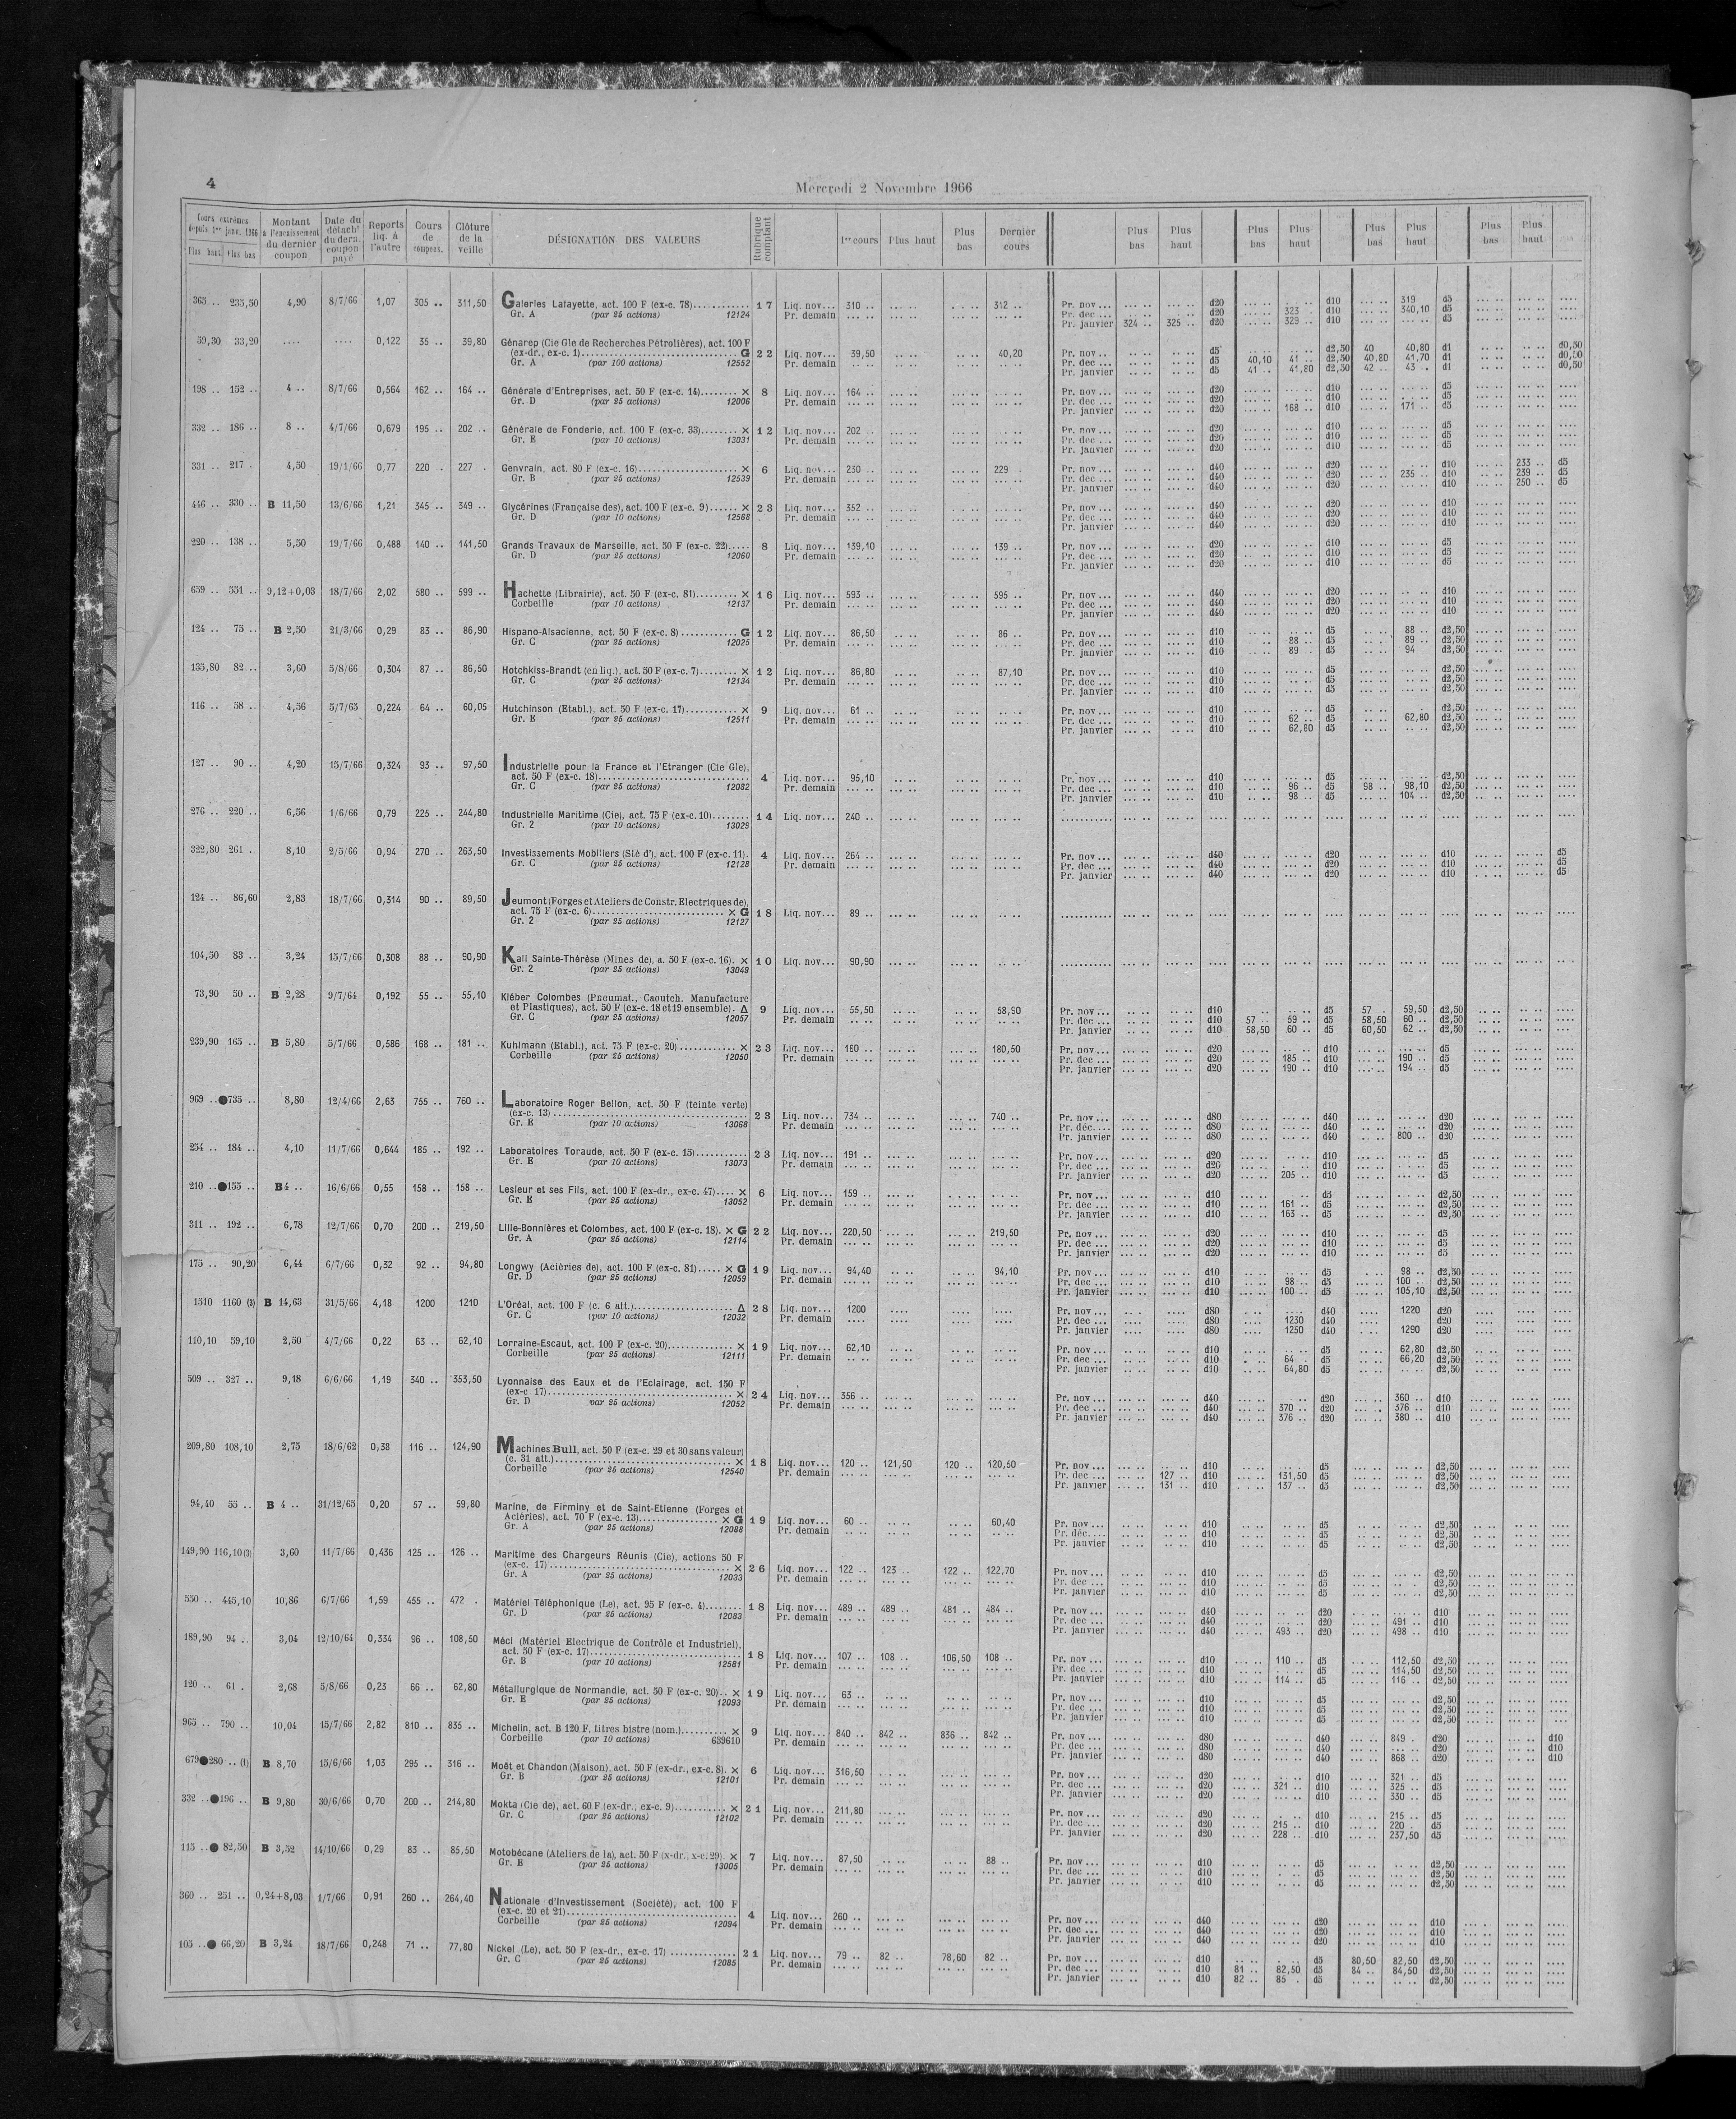 4
Mercredi 2 Novembre 1966
Cours extrêmes depuis 1er janv. 1966 Plus haut Plus bas | Montant à l'encaissement du dernier coupon | Date du détacht du dern. coupon payé | Reports liq. à l'autre | Cours de coupons. | Clôture de la veille | DÉSIGNATION DES VALEURS | Rubrique comptant | 1er cours | Plus haut | Plus bas | Dernier cours | Plus bas | Plus haut | Plus bas | Plus haut | Plus bas | Plus haut | Plus bas | Plus haut
365 .. 235,50 4,90 8/7/66 1,07 305 .. 311,50 Galeries Lafayette, act. 100 F (ex-c. 78) 17 Liq. nov... 310 .. 312 .. Pr. nov... d20 d10 319 d5
Gr. A (par 25 actions) 12124 Pr. demain Pr. dec ... d20 323 . d10 340,10 d5
Pr. janvier 324 .. 325 .. d20 329 .. d10 d5
59,30 33,20 .... .... 0,122 35 .. 39,80 Génarep (Cie Gle de Recherches Pétrolières), act. 100 F
(ex-dr., ex-c. 1) G 22 Liq. nov... 39,50 40,20 Pr. nov .. d5 d2,50 40 40,80 d1 d0,50
Gr. A (par 100 actions) 12552 Pr. demain Pr. dec ... d5 40,10 41 .. d2,50 40,80 41,70 d1 d0,50
Pr. janvier d5 41 .. 41,80 d2,50 42 .. 43 .. d1 d0,50
198 .. 152 .. 4 .. 8/7/66 0,564 162 .. 164 .. Générale d'Entreprises, act. 50 F (ex-c. 14) × 8 Liq. nov... 164 .. Pr. nov ... d20 d10 d5
Gr. D (par 25 actions) 12006 Pr. demain Pr. dec ... d20 d10 d5
Pr. janvier d20 168 .. d10 171 .. d5
332 .. 186 .. 8 .. 4/7/66 0,679 195 .. 202 .. Générale de Fonderie, act. 100 F (ex-c. 33) × 12 Liq. nov... 202 .. Pr. nov ... d20 d10 d5
Gr. E (par 10 actions) 13031 Pr. demain Pr. dec ... d20 d10 d5
Pr. janvier d20 d10 d5
331 .. 217 . 4,50 19/1/66 0,77 220 . 227 . Genvrain, act. 80 F (ex-c. 16) × 6 Liq. nov... 230 .. 229 . Pr. nov ... d40 d20 d10 233 .. d5
Gr. B (par 25 actions) 12539 Pr. demain Pr. dec ... d40 d20 235 .. d10 239 .. d5
Pr. janvier d40 d20 d10 250 .. d5
446 .. 330 .. B 11,50 13/6/66 1,21 345 .. 349 .. Glycérines (Française des), act. 100 F (ex-c. 9) × 23 Liq. nov... 352 .. Pr. nov ... d40 d20 d10
Gr. D (par 10 actions) 12568 Pr. demain Pr. dec ... d40 d20 d10
Pr. janvier d40 d20 d10
220 .. 138 .. 5,50 19/7/66 0,488 140 .. 141,50 Grands Travaux de Marseille, act. 50 F (ex-c. 22) 8 Liq. nov... 139,10 139 .. Pr. nov ... d20 d10 d5
Gr. D (par 25 actions) 12060 Pr. demain Pr. dec ... d20 d10 d5
Pr. janvier d20 d10 d5
659 .. 551 .. 9,12+0,03 18/7/66 2,02 580 .. 599 .. Hachette (Librairie), act. 50 F (ex-c. 81) × 16 Liq. nov... 593 .. 595 .. Pr. nov ... d40 d20 d10
Corbeille (par 10 actions) 12137 Pr. demain Pr. dec ... d40 d20 d10
Pr. janvier d40 d20 d10
124 .. 75 .. B 2,50 21/3/66 0,29 83 .. 86,90 Hispano-Alsacienne, act. 50 F (ex-c. 8) G 12 Liq. nov... 86,50 86 .. Pr. nov ... d10 d5 88 .. d2,50
Gr. C (par 25 actions) 12025 Pr. demain Pr. dec ... d10 88 .. d5 89 .. d2,50
Pr. janvier d10 89 .. d5 94 d2,50
135,80 82 .. 3,60 5/8/66 0,304 87 .. 86,50 Hotchkiss-Brandt (en liq.), act. 50 F (ex-c. 7) × 12 Liq. nov... 86,80 87,10 Pr. nov ... d10 d5 d2,50
Gr. C (par 25 actions) 12134 Pr. demain Pr. dec ... d10 d5 d2,50
Pr. janvier d10 d5 d2,50
116 .. 58 .. 4,56 5/7/65 0,224 64 .. 60,05 Hutchinson (Etabl.), act. 50 F (ex-c. 17) × 9 Liq. nov... 61 .. Pr. nov ... d10 d5 d2,50
Gr. E (par 25 actions) 12511 Pr. demain Pr. dec ... d10 62 .. d5 62,80 d2,50
Pr. janvier d10 62,80 d5 d2,50
127 .. 90 .. 4,20 15/7/66 0,324 93 .. 97,50 Industrielle pour la France et l'Etranger (Cie Gle),
act. 50 F (ex-c. 18) 4 Liq. nov... 95,10 Pr. nov ... d10 d5 d2,50
Gr. C (par 25 actions) 12082 Pr. demain Pr. dec ... d10 96 .. d5 98 .. 98,10 d2,50
Pr. janvier d10 98 .. d5 104 .. d2,50
276 .. 220 .. 6,56 1/6/66 0,79 225 .. 244,80 Industrielle Maritime (Cie), act. 75 F (ex-c. 10) 14 Liq. nov... 240 ..
Gr. 2 (par 10 actions) 13029
322,80 261 .. 8,10 2/5/66 0,94 270 .. 263,50 Investissements Mobiliers (Sté d'), act. 100 F (ex-c. 11). 4 Liq. nov... 264 .. Pr. nov ... d40 d20 d10 d5
Gr. C (par 25 actions) 12128 Pr. demain Pr. dec ... d40 d20 d10 d5
Pr. janvier d40 d20 d10 d5
124 .. 86,60 2,83 18/7/66 0,314 90 .. 89,50 Jeumont (Forges et Ateliers de Constr. Electriques de),
act. 75 F (ex-c. 6) × G 18 Liq. nov... 89 ..
Gr. 2 (par 25 actions) 12127
104,50 83 .. 3,24 15/7/66 0,308 88 .. 90,90 Kali Sainte-Thérèse (Mines de), a. 50 F (ex-c. 16). × 10 Liq. nov... 90,90
Gr. 2 (par 25 actions) 13049
73,90 50 .. B 2,28 9/7/64 0,192 55 .. 55,10 Kléber Colombes (Pneumat., Caoutch. Manufacture
et Plastiques), act. 50 F (ex-c. 18 et 19 ensemble). Δ 9 Liq. nov... 55,50 58,50 Pr. nov ... d10 d5 57 . 59,50 d2,50
Gr. C (par 25 actions) 12057 Pr. demain Pr. dec ... d10 57 . 59 .. d5 58,50 60 .. d2,50
Pr. janvier d10 58,50 60 .. d5 60,50 62 .. d2,50
239,90 165 .. B 5,80 5/7/66 0,586 168 .. 181 .. Kuhlmann (Etabl.), act. 75 F (ex-c. 20) × 23 Liq. nov... 180 .. 180,50 Pr. nov ... d20 d10 d5
Corbeille (par 25 actions) 12050 Pr. demain Pr. dec ... d20 185 .. d10 190 .. d5
Pr. janvier d20 190 .. d10 194 .. d5
969 .. ●735 .. 8,80 12/4/66 2,63 755 .. 760 .. Laboratoire Roger Bellon, act. 50 F (teinte verte)
(ex-c. 13) 23 Liq. nov... 734 .. 740 .. Pr. nov ... d80 d40 d20
Gr. E (par 10 actions) 13068 Pr. demain Pr. déc.... d80 d40 d20
Pr. janvier d80 d40 800 .. d20
254 .. 184 .. 4,10 11/7/66 0,644 185 .. 192 .. Laboratoires Toraude, act. 50 F (ex-c. 15) 23 Liq. nov... 191 .. Pr. nov ... d20 d10 d5
Gr. E (par 10 actions) 13073 Pr. demain Pr. dec ... d20 d10 d5
Pr. janvier d20 205 .. d10 d5
210 .. ●155 .. B 4 .. 16/6/66 0,55 158 .. 158 .. Lesieur et ses Fils, act. 100 F (ex-dr., ex-c. 47) × 6 Liq. nov... 159 .. Pr. nov ... d10 d5 d2,50
Gr. E (par 25 actions) 13052 Pr. demain Pr. dec ... d10 161 .. d5 d2,50
Pr. janvier d10 163 .. d5 d2,50
311 .. 192 .. 6,78 12/7/66 0,70 200 .. 219,50 Lille-Bonnières et Colombes, act. 100 F (ex-c. 18). × G 22 Liq. nov... 220,50 219,50 Pr. nov ... d20 d10 d5
Gr. A (par 25 actions) 12114 Pr. demain Pr. dec ... d20 d10 d5
Pr. janvier d20 d10 d5
175 .. 90,20 6,44 6/7/66 0,32 92 .. 94,80 Longwy (Aciéries de), act. 100 F (ex-c. 81) × G 19 Liq. nov... 94,40 94,10 Pr. nov ... d10 d5 98 .. d2,50
Gr. D (par 25 actions) 12059 Pr. demain Pr. dec ... d10 98 .. d5 100 .. d2,50
Pr. janvier d10 100 .. d5 105,10 d2,50
1510 1160 (3) B 14,63 31/5/66 4,18 1200 1210 L'Oréal, act. 100 F (c. 6 att.) Δ 28 Liq. nov... 1200 Pr. nov ... d80 d40 1220 d20
Gr. C (par 10 actions) 12032 Pr. demain Pr. dec ... d80 1230 d40 d20
Pr. janvier d80 1250 d40 1290 d20
110,10 59,10 2,50 4/7/66 0,22 63 .. 62,10 Lorraine-Escaut, act. 100 F (ex-c. 20) × 19 Liq. nov... 62,10 Pr. nov ... d10 d5 62,80 d2,50
Corbeille (par 25 actions) 12111 Pr. demain Pr. dec ... d10 64 . d5 66,20 d2,50
Pr. janvier d10 64,80 d5 d2,50
509 .. 327 .. 9,18 6/6/66 1,19 340 .. 353,50 Lyonnaise des Eaux et de l'Eclairage, act. 150 F
(ex-c 17) × 24 Liq. nov... 356 .. Pr. nov ... d40 d20 360 .. d10
Gr. D par 25 actions) 12052 Pr. demain Pr. dec ... d40 370 .. d20 376 .. d10
Pr. janvier d40 376 .. d20 380 .. d10
209,80 108,10 2,75 18/6/62 0,38 116 .. 124,90 Machines Bull, act. 50 F (ex-c. 29 et 30 sans valeur)
(c. 31 att.) × 18 Liq. nov... 120 .. 121,50 120 .. 120,50 Pr. nov ... d10 d5 d2,50
Corbeille (par 25 actions) 12540 Pr. demain Pr. dec ... 127 .. d10 131,50 d5 d2,50
Pr. janvier 131 .. d10 137 .. d5 d2,50
94,40 55 .. B 4 .. 31/12/65 0,20 57 .. 59,80 Marine, de Firminy et de Saint-Etienne (Forges et
Aciéries), act. 70 F (ex-c. 13) × G 19 Liq. nov... 60 .. 60,40 Pr. nov ... d10 d5 d2,50
Gr. A (par 25 actions) 12088 Pr. demain Pr. déc.... d10 d5 d2,50
Pr. janvier d10 d5 d2,50
149,90 116,10 (3) 3,60 11/7/66 0,436 125 .. 126 .. Maritime des Chargeurs Réunis (Cie), actions 50 F
(ex-c. 17) × 26 Liq. nov... 122 .. 123 .. 122 .. 122,70 Pr. nov ... d10 d5 d2,50
Gr. A (par 25 actions) 12033 Pr. demain Pr. dec ... d10 d5 d2,50
Pr. janvier d10 d5 d2,50
550 .. 445,10 10,86 6/7/66 1,59 455 .. 472 . Matériel Téléphonique (Le), act. 95 F (ex-c. 4) 18 Liq. nov... 489 .. 489 .. 481 .. 484 .. Pr. nov ... d40 d20 d10
Gr. D (par 25 actions) 12083 Pr. demain Pr. dec ... d40 d20 491 .. d10
Pr. janvier d40 493 .. d20 498 .. d10
189,90 94 .. 3,04 12/10/64 0,334 96 .. 108,50 Méci (Matériel Electrique de Contrôle et Industriel),
act. 50 F (ex-c. 17) 18 Liq. nov... 107 .. 108 .. 106,50 108 .. Pr. nov ... d10 110 .. d5 112,50 d2,50
Gr. B (par 10 actions) 12581 Pr. demain Pr. dec ... d10 d5 114,50 d2,50
Pr. janvier d10 114 .. d5 116 .. d2,50
120 .. 61 . 2,68 5/8/66 0,23 66 .. 62,80 Métallurgique de Normandie, act. 50 F (ex-c. 20).. × 19 Liq. nov... 63 .. Pr. nov ... d10 d5 d2,50
Gr. E (par 25 actions) 12093 Pr. demain Pr. dec ... d10 d5 d2,50
Pr. janvier d10 d5 d2,50
965 .. 790 .. 10,04 15/7/66 2,82 810 .. 835 .. Michelin, act. B 120 F, titres bistre (nom.) × 9 Liq. nov... 840 .. 842 .. 836 .. 842 .. Pr. nov ... d80 d40 849 .. d20 d10
Corbeille (par 10 actions) 639610 Pr. demain Pr. dec ... d80 d40 d20 d10
Pr. janvier d80 d40 868 .. d20 d10
679 ●280 .. (1) B 8,70 15/6/66 1,03 295 .. 316 .. Moët et Chandon (Maison), act. 50 F (ex-dr., ex-c. 8). × 6 Liq. nov... 316,50 Pr. nov ... d20 d10 321 .. d5
Gr. B (par 25 actions) 12101 Pr. demain Pr. dec ... d20 321 .. d10 325 .. d5
Pr. janvier d20 d10 330 .. d5
332 .. ●196 .. B 9,80 30/6/66 0,70 200 .. 214,80 Mokta (Cie de), act. 60 F (ex-dr., ex-c. 9) × 21 Liq. nov... 211,80 Pr. nov ... d20 d10 215 .. d5
Gr. C (par 25 actions) 12102 Pr. demain Pr. dec ... d20 215 .. d10 220 . d5
Pr. janvier d20 228 .. d10 237,50 d5
115 .. ● 82,50 B 3,52 14/10/66 0,29 83 .. 85,50 Motobécane (Ateliers de la), act. 50 F (x-dr., x-c. 29). × 7 Liq. nov... 87,50 88 .. Pr. nov ... d10 d5 d2,50
Gr. E (par 25 actions) 13005 Pr. demain Pr. dec ... d10 d5 d2,50
Pr. janvier d10 d5 d2,50
360 .. 251 .. 0,24+8,03 1/7/66 0,91 260 .. 264,40 Nationale d'Investissement (Société), act. 100 F
(ex-c. 20 et 21) 4 Liq. nov... 260 .. Pr. nov ... d40 d20 d10
Corbeille (par 25 actions) 12094 Pr. demain Pr. dec ... d40 d20 d10
Pr. janvier d40 d20 d10
105 .. ● 66,20 B 3,24 18/7/66 0,248 71 .. 77,80 Nickel (Le), act. 50 F (ex-dr., ex-c. 17) 21 Liq. nov... 79 .. 82 .. 78,60 82 .. Pr. nov ... d10 d5 80,50 82,50 d2,50
Gr. C (par 25 actions) 12085 Pr. demain Pr. dec ... d10 81 .. 82,50 d5 84 .. 84,50 d2,50
Pr. janvier d10 82 .. 85 . d5 d2,50